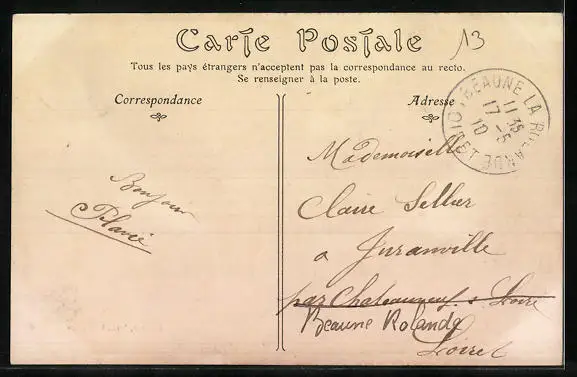 Carte Postale
13
Tous les pays étrangers n'acceptent pas la correspondance au recto.
Se renseigner à la poste.
Correspondance
Adresse
BEAUNE LA ROLANDE
LOIRET
11 35
17 -5
10
Bonjour
Flavie
Mademoiselle
Claire Sellier
a Juranville
par Chateauneuf s Loire
Beaune Rolande
Loiret